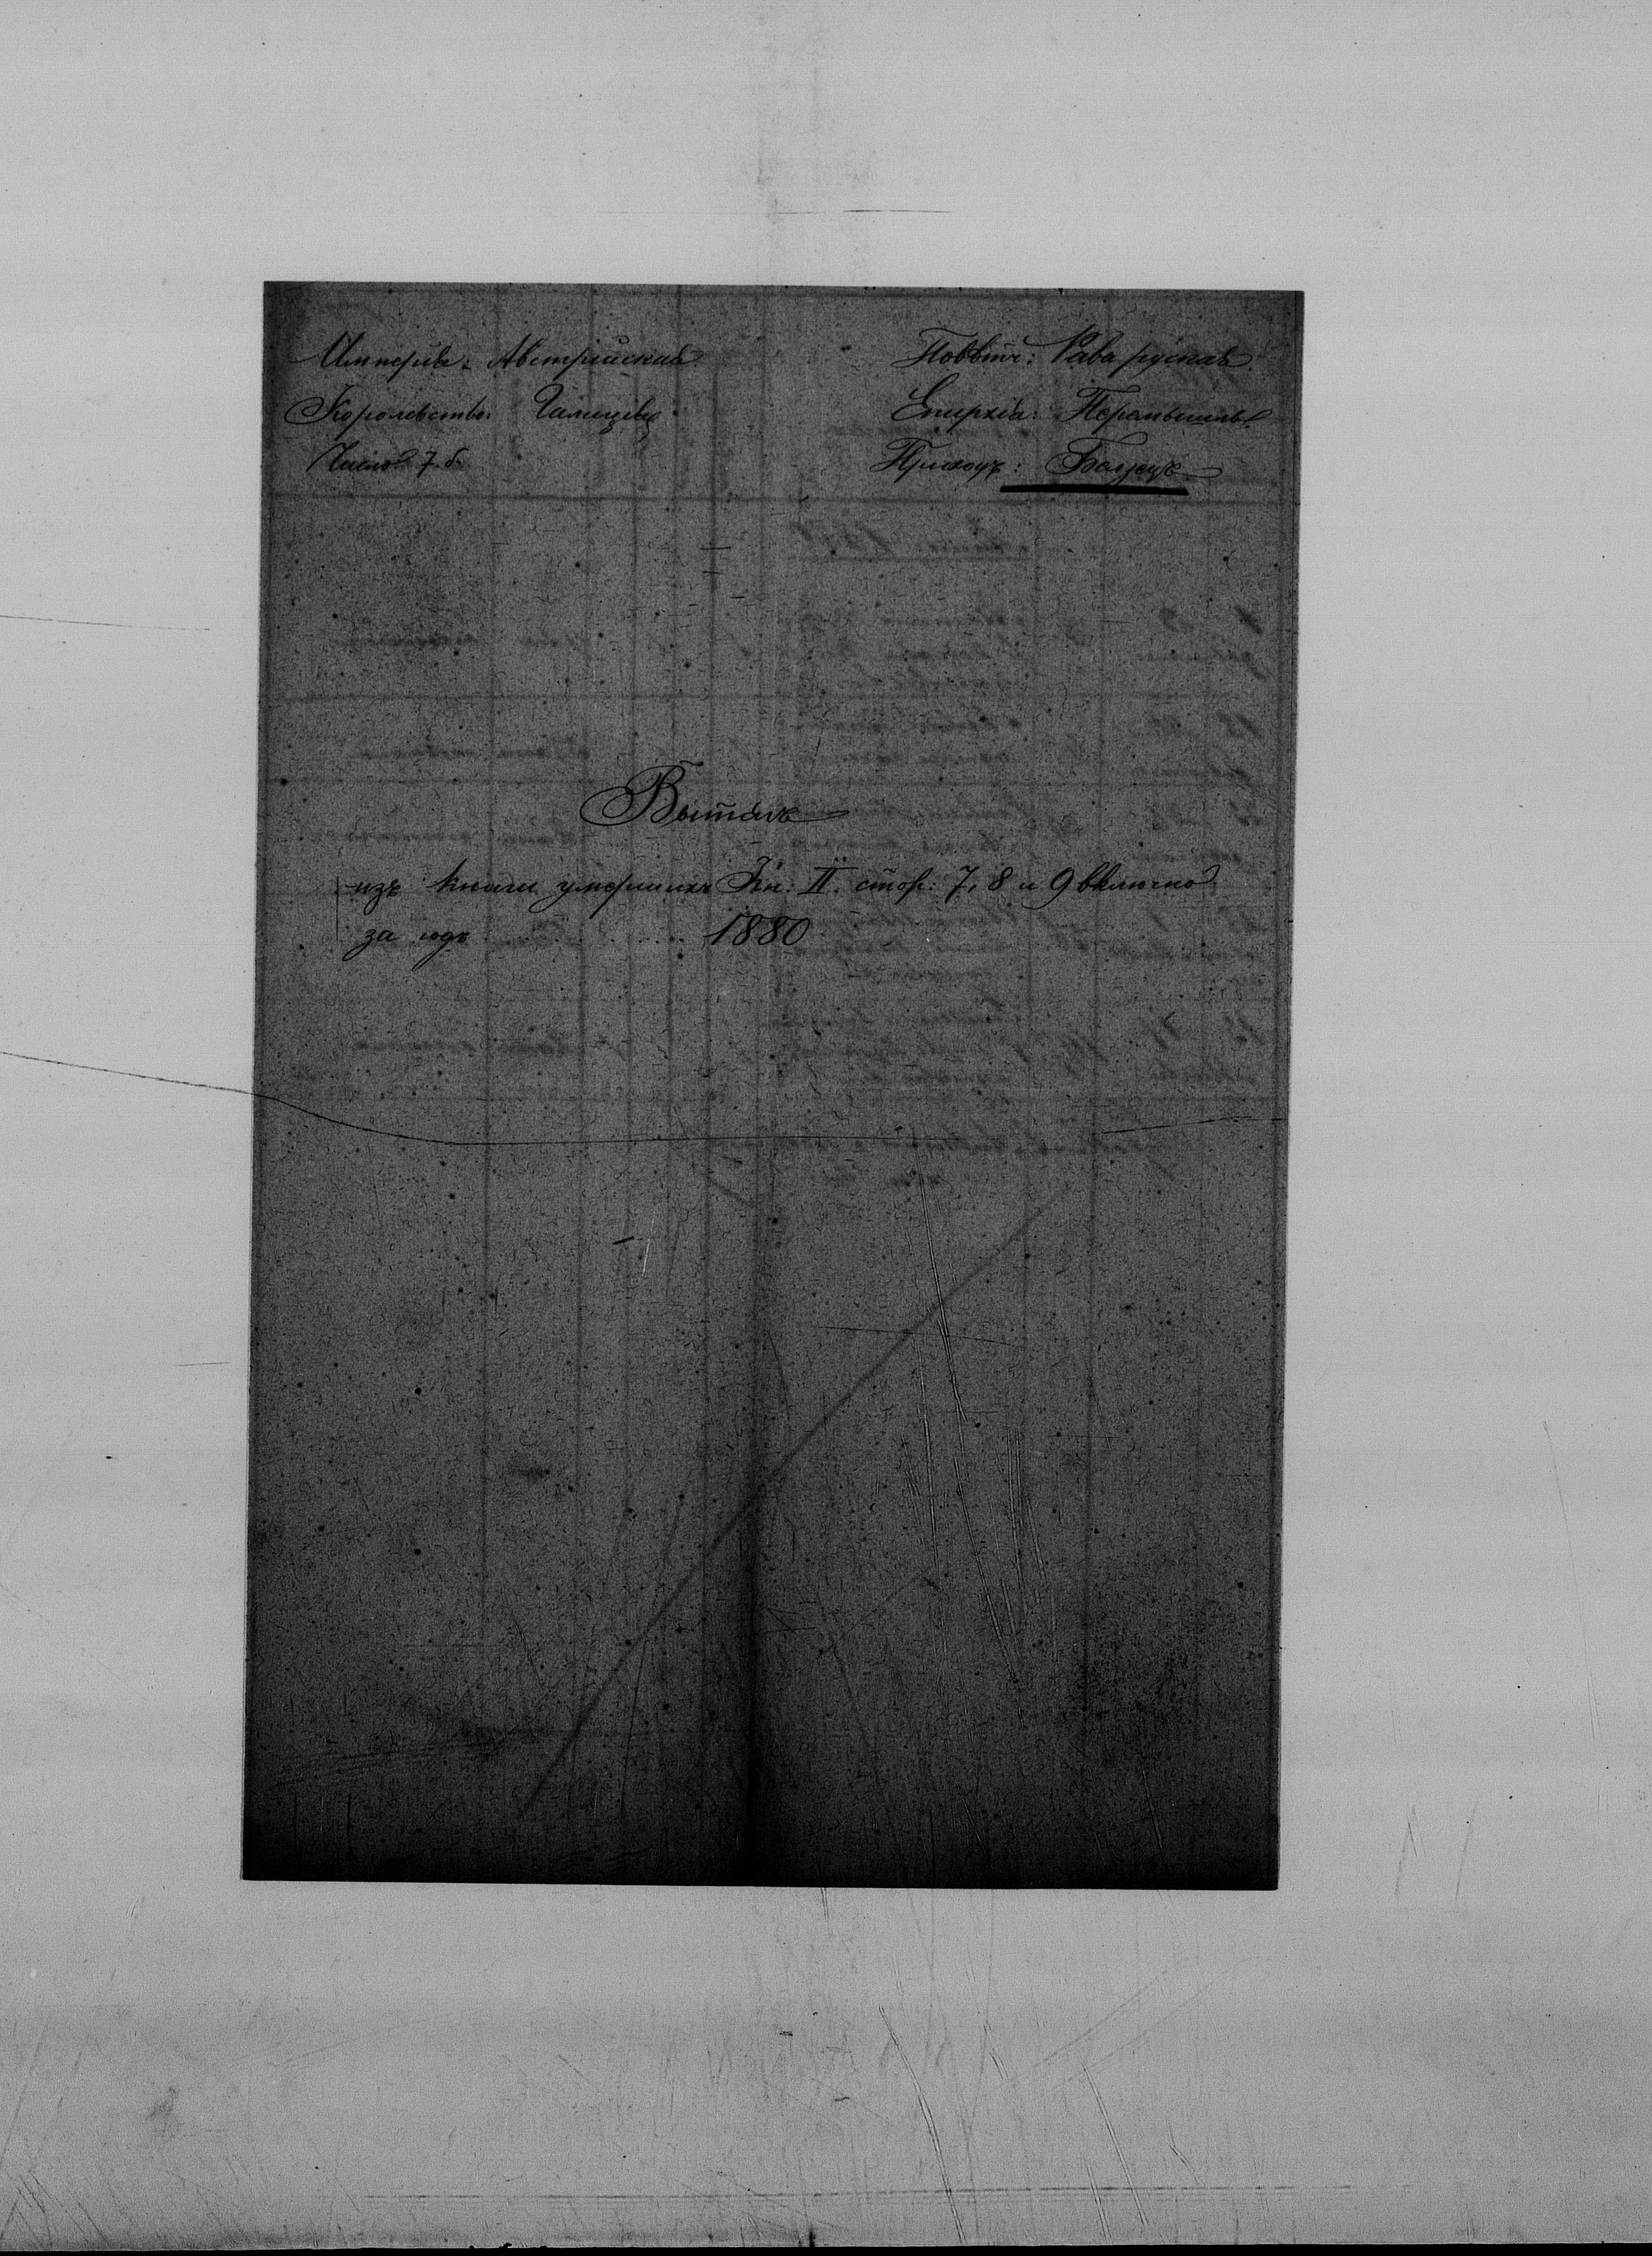 Имперія: Австрійская.
Королевство: Галиція
Число 7. б.
Повѣтъ: Рава руская.
Епархія: Перемышль.
Приходъ: Белзець
Вытягъ
изъ книги умершихъ Кн: II. стор: 7, 8 и 9 включно
за годъ . . . . . . . . . . 1880